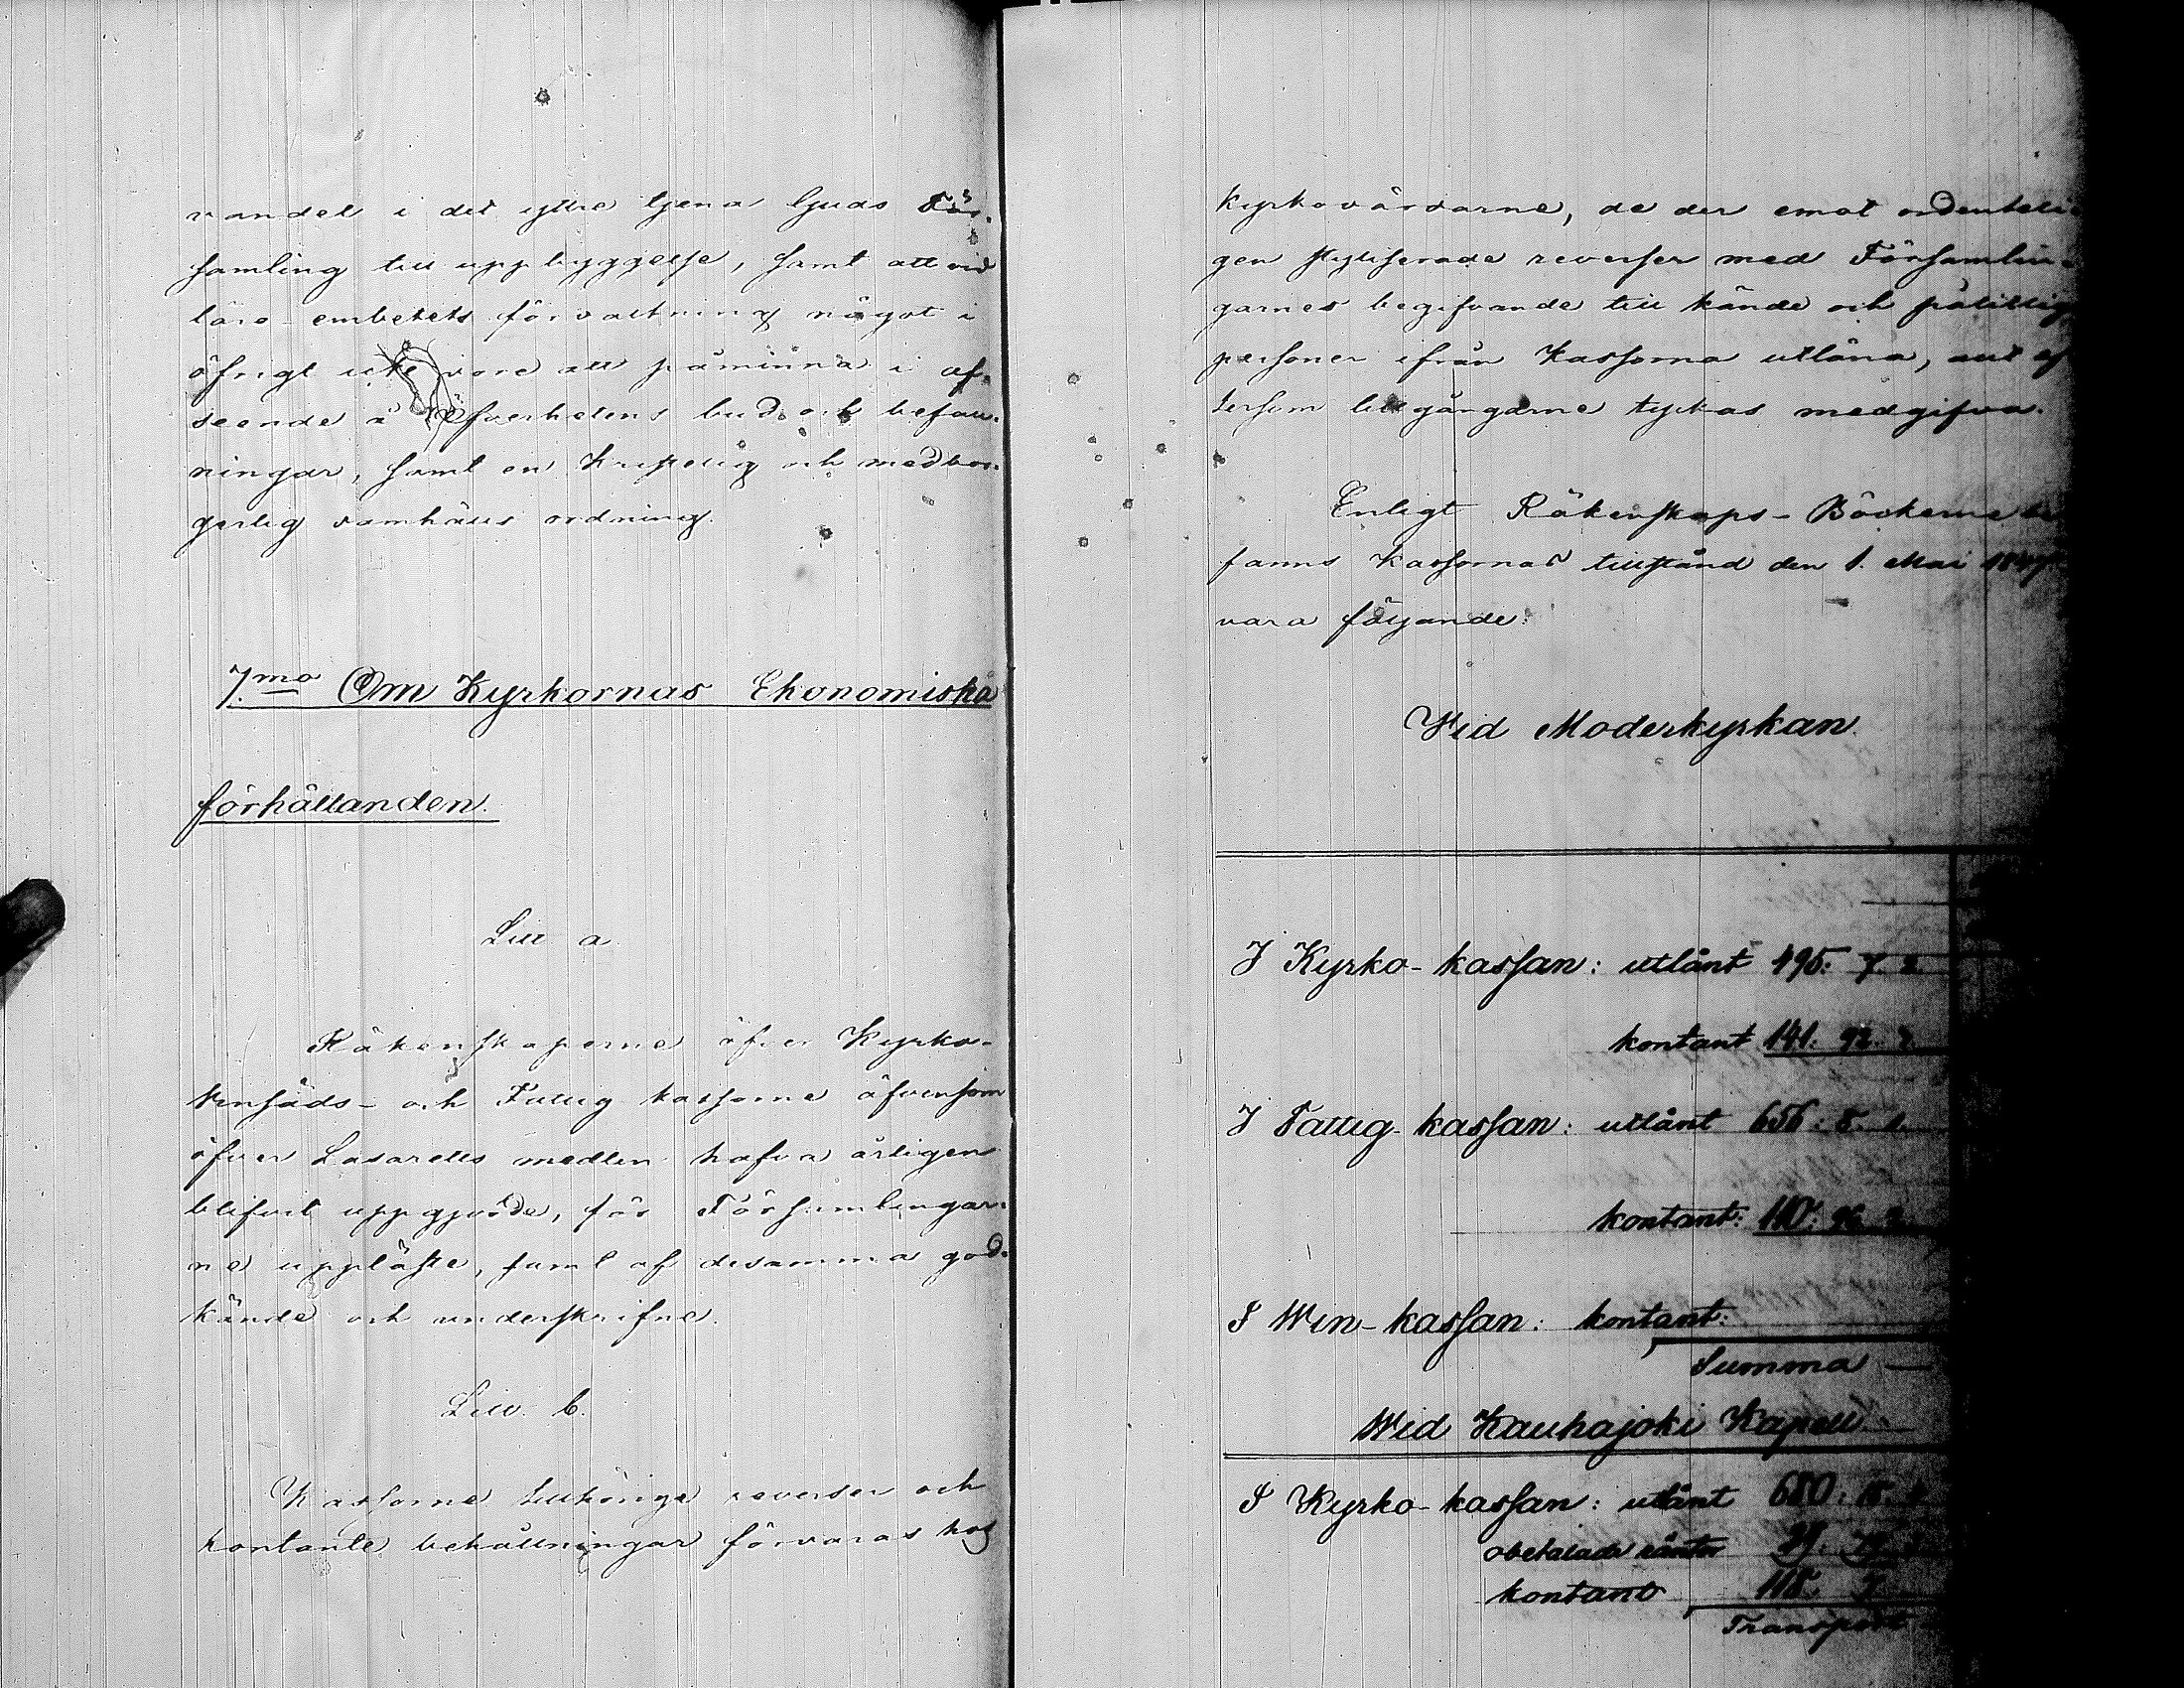 vandel i det yttre tjena Guds För-
samling till uppbyggelse, samt att vid
läro-embetets förvaltning något i
öfrigt icke vore att påminna i af-
seende å Öfverhetens bud och befall-
ningar, samt en kristelig och medbor-
gerlig samhälls ordning.
7.mo Om Kyrkornas Ekonomiska
förhållanden.
Litt a.
Räkenskaperne öfver Kyrko-
Vinsäds- och Fattig kassorne äfvensom
öfver Lasaretts medlen hafva årligen
blifvit uppgjorde, för Församlingar-
ne uppläste, samt af desamma god-
kände och underskrifne.
Litt. b.
Kassorne tillhörige reverser och
kontante behållningar förvaras hos
Kyrkovärdarne, de der emot ordenteli-
gen styliserade reverser med Församlin-
garnes begifvande till kände och pålitlige
personer ifrån Kassorna utlåna, allt ef
tersom tillgångarne tyckas medgifva.
Enligt Räkenskaps-Böckerne be
fanns Kassornas tillstånd den 1. Maj 1847
vara följande:
Wid Moderkyrkan.
I Kyrko-kassan: utlånt 495: 7. 2.
kontant 141. 92. 2.
I Fattig-kassan: utlånt 656: 8. 1.
kontant: 110: 96.
I Win-kassan: kontant:
Summa
Wid Kauhajoki Kapell.
I Kyrko-kassan: utlånt 680: 15.
obetalade räntor 29.
kontant 118. 7.
Transport